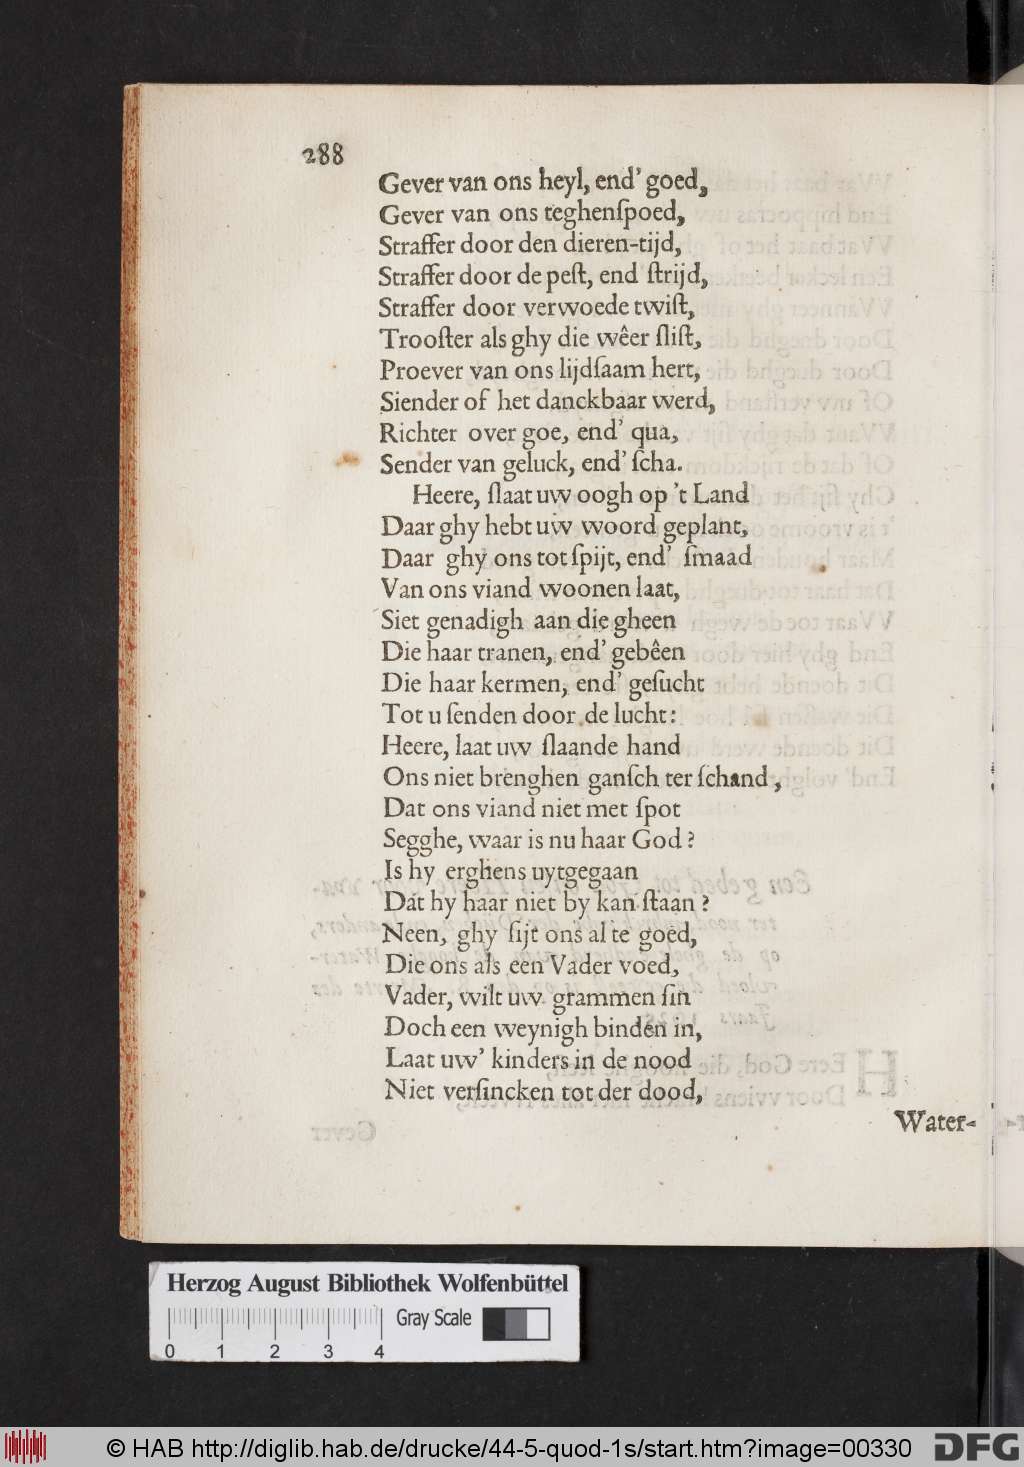 288
Gever van ons heyl, end' goed,
Gever van ons teghenſpoed,
Straffer door den dieren-tijd,
Straffer door de peſt, end ſtrijd,
Straffer door verwoede twiſt,
Trooſter als ghy die wêer ſliſt,
Proever van ons lijdſaam hert,
Siender of het danckbaar werd,
Richter over goe, end' qua,
Sender van geluck, end' ſcha.
Heere, ſlaat uw oogh op 't Land
Daar ghy hebt uw woord geplant,
Daar ghy ons tot ſpijt, end' ſmaad
Van ons viand woonen laat,
Siet genadigh aan die gheen
Die haar tranen, end' gebêen
Die haar kermen, end' geſucht
Tot u ſenden door de lucht:
Heere, laat uw ſlaande hand
Ons niet brenghen ganſch ter ſchand,
Dat ons viand niet met ſpot
Segghe, waar is nu haar God?
Is hy erghens uytgegaan
Dat hy haar niet by kan ſtaan?
Neen, ghy ſijt ons al te goed,
Die ons als een Vader voed,
Vader, wilt uw grammen ſin
Doch een weynigh binden in,
Laat uw' kinders in de nood
Niet verſincken tot der dood,
Water-
Herzog August Bibliothek Wolfenbüttel
Gray Scale
0 1 2 3 4
© HAB http://diglib.hab.de/drucke/44-5-quod-1s/start.htm?image=00330
DFG